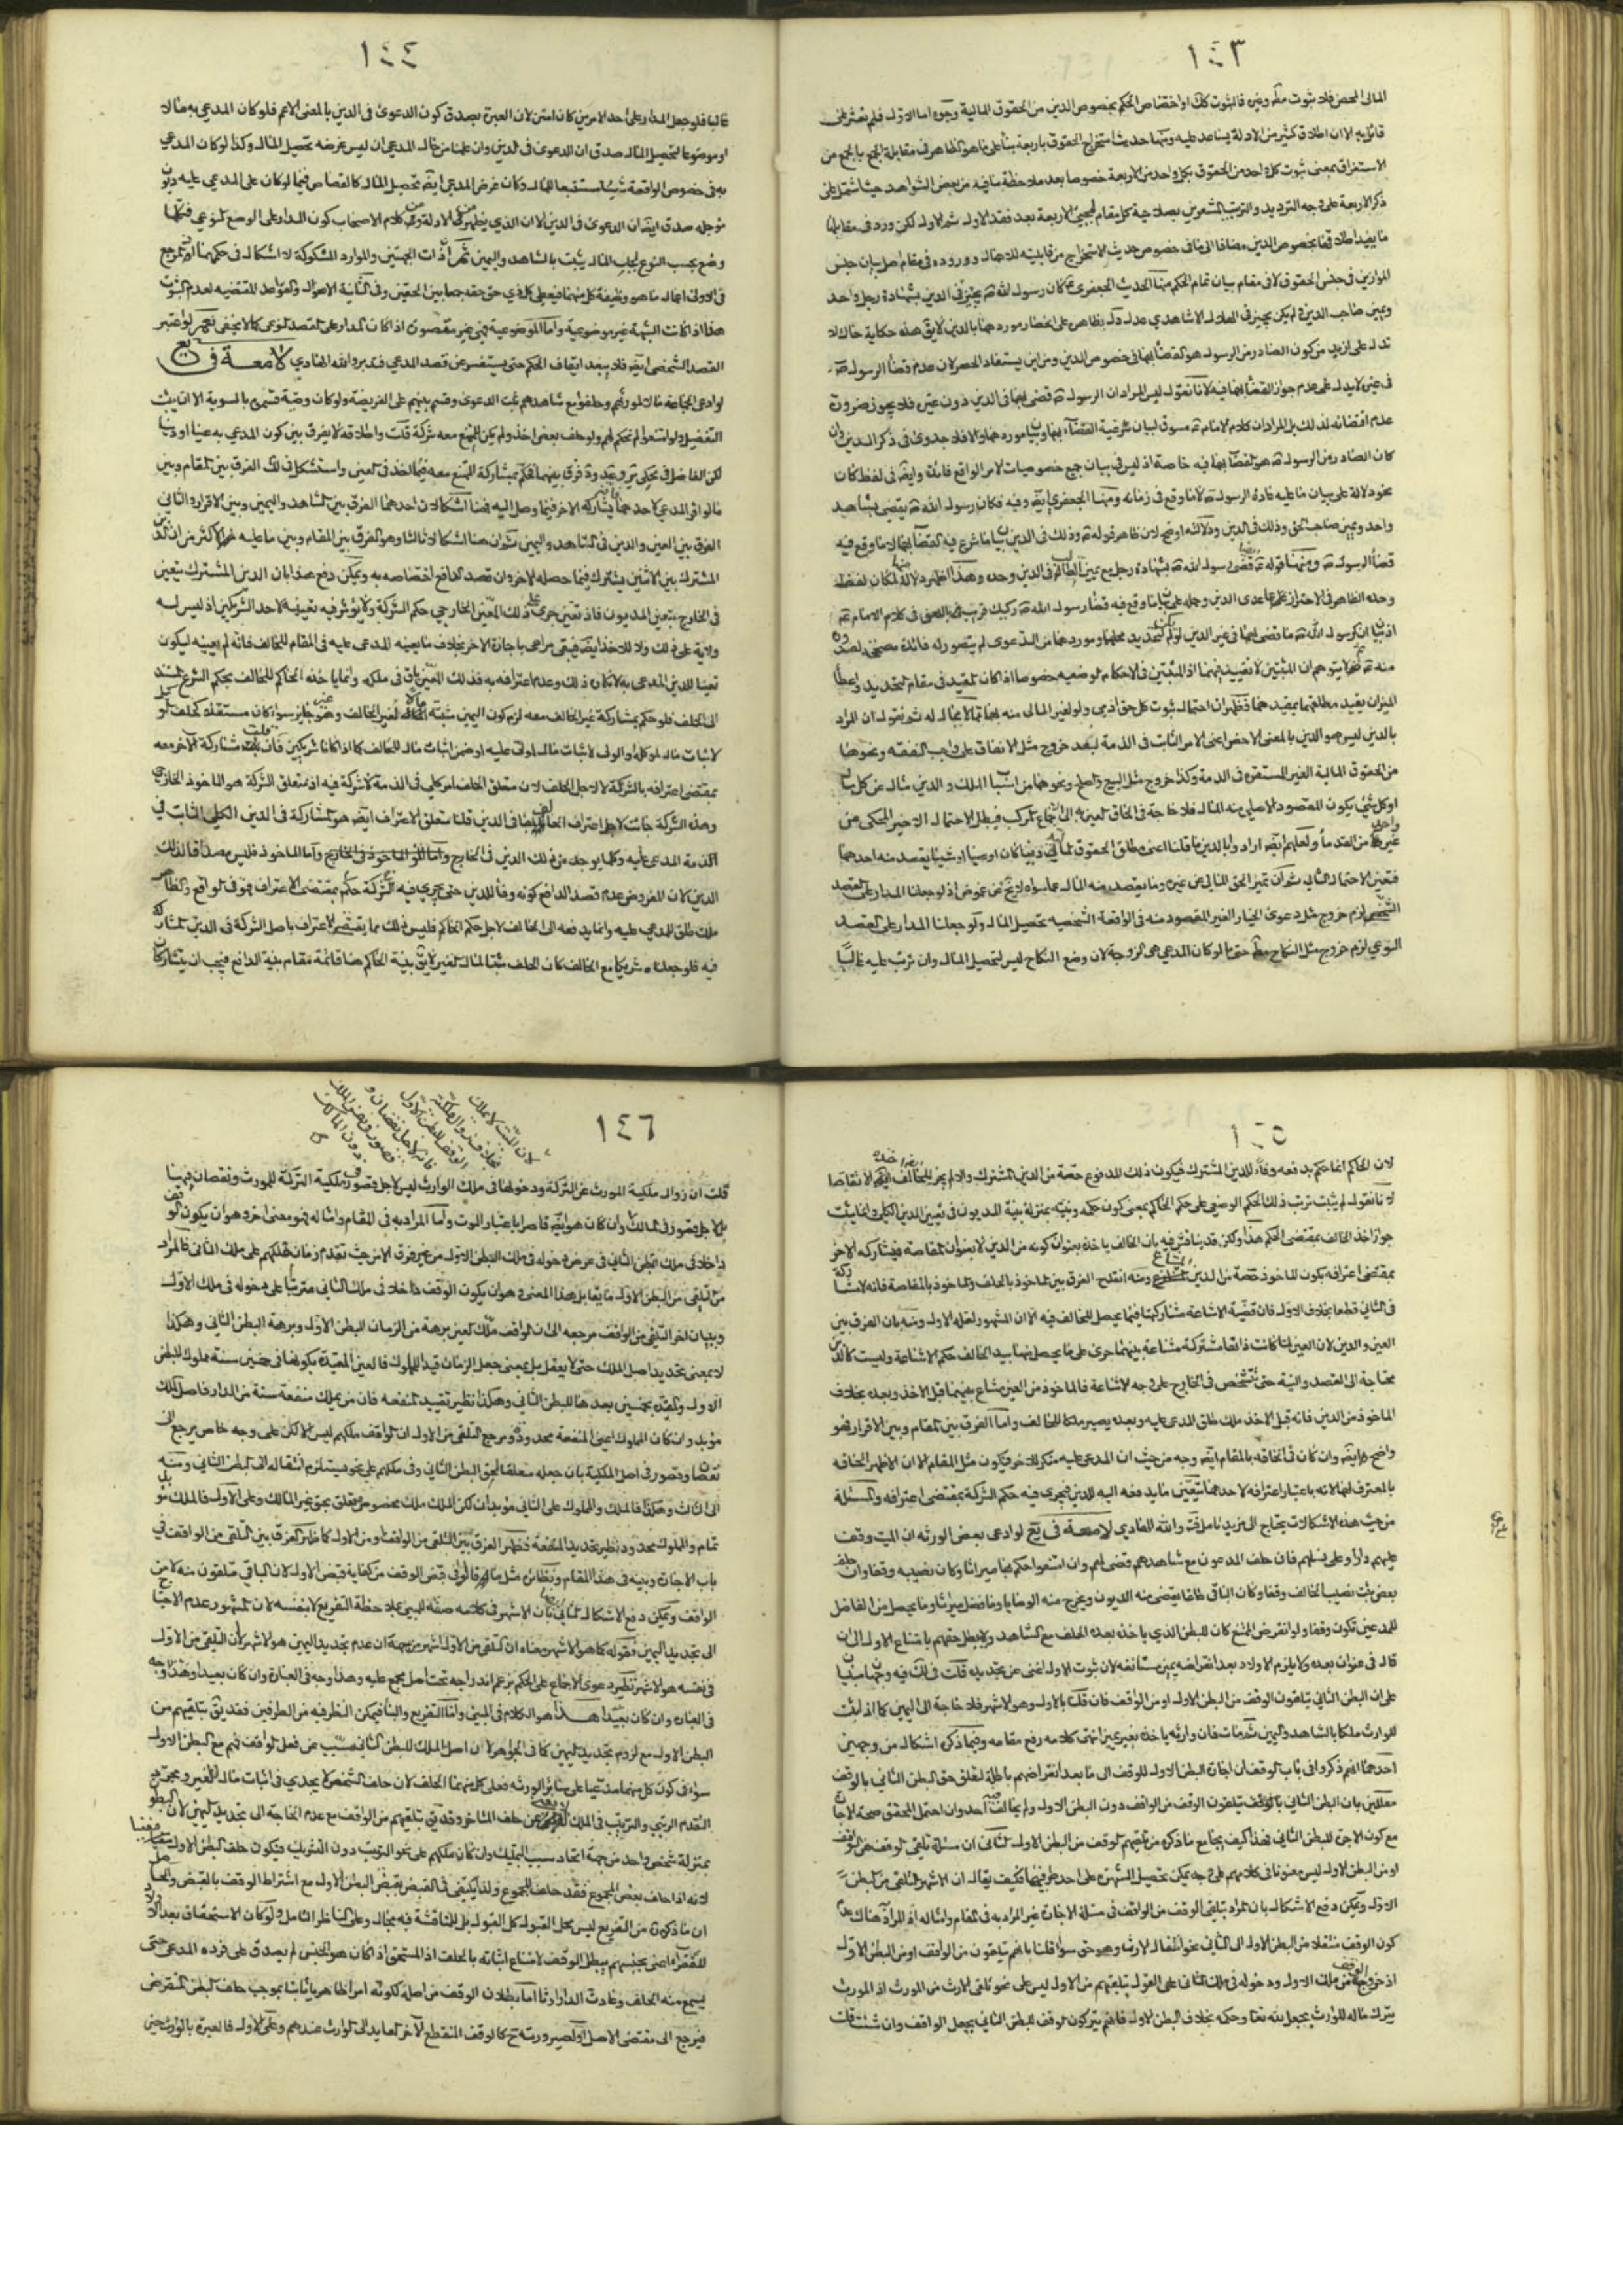 ١٤٣
المالى المحض فلا ثبوت او اختصاص الحكم بخصوص الدين من الحقوق المالية وجوه اما الاول فلم نعثر على
قائل به الا ان اطلاق كثير من الادلة يساعد عليه ومنها حديث استخراج الحقوق باربعة بناء على ما هو الظاهر فى مقابلة الجمع بالجمع من
الاستغراق بمعنى ثبوت كل واحد من الحقوق بكل واحد من الاربعة خصوصا بعد ملاحظة ما فيه من بعض الشواهد حيث اشتمل على
ذكر الاربعة على وجه الترديد والترتيب المشعرين بصلاحية كل مقام لمجيئ الاربعة بعد فقد الاول ثم الاول لكن ورد فى مقابلها
ما يفيد اطلاقها بخصوص الدين مضافا الى ما فى خصوص حديث الاستخراج من قابليته للاهمال و وروده فى مقام اصل بيان جنس
الموازين فى جنس الحقوق لا فى مقام بيان تمام الحكم منها الحديث الجعفرى كان رسول الله يجيز فى الدين بشهادة رجل واحد
ويمين صاحب الدين و لم يكن يجيز فى الهلال الا شاهدي عدل دل بظاهره على انحصار موردهما بالدين لا يق هذه حكاية حال لا
تدل على ازيد من كون الصادر من الرسول هو القضاء بهما فى خصوص الدين ومن اين يستفاد الحصر لان عدم قضاء الرسول
فى غيره لا يدل على عدم جواز القضاء بهما فيه لانا نقول ليس المراد ان الرسول قضى بهما فى الدين دون غيره فلا يجوز ضرورة
عدم اقتضائه لذلك بل المراد ان كلام الامام مسوق لبيان شرعية القضاء بهما وبيان موردهما والا فلا جدوى فى ذكر الدين وان
كان الصادر من الرسول هو القضاء بهما فيه خاصة اذ ليس فى بيان جميع خصوصيات الامر الواقع فائدة وايضا فى لفظ كان
نحو دلالة على بيان ما عليه عادة الرسول لا ما وقع فى زمانه ومنها الجعفرى وفيه فكان رسول الله يقضى بشاهد
واحد ويمين صاحب الحق وذلك فى الدين ودلالته اوضح لان ظاهر قوله وذلك فى الدين بيان ما شرع فيه القضاء بهما لا ما وقع فيه
قضاء الرسول ومنها قوله قضى رسول الله بشهادة رجل مع يمين الطالب فى الدين وحده وهذا اظهر دلالة لمكان لفظة
وحده الظاهر فى الاحتراز عما عدى الدين وحمله على بيان ما وقع فيه قضاء رسول الله ركيك
اذ بيان ان رسول الله ما قضى بهما فى غير الدين لو لم يكن لتحديد محلهما وموردهما من الدعوى لم يتصور له فائدة مصححة لصدوره
منه يتوهم ان المثبتين لا تقييد بينهما اذ المثبتين فى الاحكام الوضعيه خصوصا اذا كان المقيد فى مقام التحديد واعطاء
الميزان يقيد مطلقهما بمقيدهما فظهر ان احتمال ثبوت كل حق ادمي ولو لغير المالى منه بهما مما لا مجال له ثم نقول ان المراد
بالدين ليس هو الدين بالمعنى الاخص اعنى الامر الثابت فى الذمة لبعد خروج مثل الانفاق على واجب النفقه ونحوها
من الحقوق المالية الغير المستقره فى الذمة وكذا خروج مثل البيع والصلح ونحوهما من اسباب الملك والدين مثال عن كل مال
او كل شئ يكون المقصود الاصلي منه المال فلا حاجة فى الحاق العين به الى الاجماع المركب فيبطل الاحتمال الاخير المحكى عن
غير واحد من القدماء ولعلهم ايضا ارادوا بالدين ما قلنا اعنى مطلق الحقوق المالى دينا كان او عينا او شيئا يقصد منه احدهما
فتعين الاحتمال الثانى ثم ان تميز الحق المالى عن غيره وما يقصد منه المال عما سواه لا يخ عن غموض اذ لو جعلنا المدار على القصد
الشخصي لزم خروج مثل دعوى الخيار الغير المقصود منه فى الواقعة الشخصيه تحصيل المال ولو جعلنا المدار على القصد
النوعي لزم خروج مثل النكاح حتى لو كان المدعي هى الزوجة لان وضع النكاح ليس لتحصيل المال وان ترتب عليه غالبا
١٤٤
غالبا فلو جعل المدار على احد الامرين كان امتن لان العبرة بصدق كون الدعوى فى الدين بالمعنى الاعم فلو كان المدعى به مالا
او موضوعا لتحصيل المال صدق ان الدعوى فى الدين وان علمنا من حال المدعى ان ليس غرضه تحصيل المال وكذا لو كان المدعى
به فى خصوص الواقعة شيئا مستتبعا للمال وكان غرض المدعى ايضا تحصيل المال كالقصاص فيما لو كان على المدعى عليه ديون
مؤجله صدق ايضا ان الدعوى فى الدين الا ان الذي يظهر من الادلة ومن كلام الاصحاب كون المدار على الوضع النوعي فكلما
وضع بحسب النوع لجلب المال يثبت بالشاهد واليمين ثم ان ذات الجهتين والموارد المشكوكة لا اشكال فى حكمهما اذ المرجع
فى الاولى اعمال ما هو وظيفة كل منهما فيعطى كل ذي حق حقه جمعا بين الحقين وفى الثانية الاصول والقواعد المقتضيه لعدم الثبوت
هذا اذا كانت الشبهة غير موضوعية واما الموضوعية فهى غير مقصورة اذا كان المدار على القصد النوعى كما لا يخفى نعم لو اعتبر
القصد الشخصى ايضا فلا يبعد ايقاف الحكم حتى يستفسر عن قصد المدعي فتدبر والله الهادي لامعة فى يع
لو ادعى الجماعة مالا لمورثهم وحلفوا مع شاهدهم ثبت الدعوى وقسم بينهم على الفريضة ولو كان وصية قسمت بالسوية الا ان يثبت
التفضيل ولو امتنعوا لم يحكم لهم ولو حلف بعض اخذ ولم يكن للممتنع معه شركة قلت واطلاقه لا يفرق بين كون المدعي به عينا او دينا
لكن الفاضل فى محكى ير وعد ود فرق بينهما فحكم بمشاركة الممتنع معه فيما اخذ فى العين واستشكل فى لك الفرق بين المقام وبين
ما لو اقر المدعى لاحدهما بمشاركه الاخر فيما وصل اليه فهنا اشكالان احدهما الفرق بين الشاهد واليمين وبين الاقرار والثانى
الفرق بين العين والدين فى الشاهد واليمين ثم ان هنا اشكالا ثالثا وهو الفرق بين المقام وبين ما عليه الاكثر من ان الدين
المشترك بين الاثنين يشترك فيما حصله الاخر وان قصد الدافع اختصاصه به ويمكن دفع هذا بان الدين المشترك يتعين
فى الخارج بتعيين المديون فاذ تعين جرى على ذلك المعين الخارجي حكم الشركة ولا يؤثر فيه تعيينه لاحد الشريكين اذ ليس له
ولاية على ذلك ولا للاخذ ايضا فيبقى مراعى باجازة الاخر بخلاف ما يعينه المدعى عليه فى المقام للحالف فانه لم يعينه ليكون
تعينا للدين المدعى به لانكاره ذلك وعدم اعترافه به فذلك المعين باق فى ملكه وانما ياخذه الحاكم للحالف بحكم الشرع المستند
الى الحلف فلو حكم بمشاركة غير الحالف معه لزم كون اليمين مثبتة المال لغير الحالف وهو غير جايز سواء كان مستقلا كحلف الوكيل
لاثبات مال لموكله او الولى لاثبات مال المولى عليه او ضمن اثبات مال الحالف كما اذا كانا شريكين فان قلت مشاركة الاخر معه
بمقتضى اعترافه بالشركة لا لاجل الحلف لان متعلق الحلف امر كلي فى الذمة لا شركة فيه اذ متعلق الشركة هو الماخوذ الخارجي
وهذه الشركة جائت لاجل اعتراف الحالف بها فى الدين قلنا متعلق الاعتراف ايضا هو المشاركة فى الدين الكلي الثابت فى
الذمة المدعى عليه وكلما يوجد من ذلك الدين فى الخارج واما الماخوذ فليس مصداقا لذلك
الدين لان المفروض عدم قصد الدافع كونه وفاء للدين حتى يجري فيه حكم الشركة بمقتضى الاعتراف فهو فى الواقع والظاهر
ملك طلق للمدعي عليه وانما يدفعه الى الحالف لاجل حكم الحاكم فليس ذلك مما يقتضى الاعتراف باصل الشركة فى الدين المشاركة
فيه فلو جعلناه شريكا مع الحالف كان الحلف مثبتا لمال الغير لا يق نية الحاكم هنا قائمة مقام نية الدافع فيجب ان يتشاركا
١٤٥
لان الحاكم انما حكم بدفعه وفاء للدين المشترك فيكون ذلك المدفوع حصة من الدين المشترك والا لم يجز للحالف اخذه الا تقاصا
لانا نقول لم يثبت ترتب ذلك الحكم الوضعي على حكم الحاكم بمعنى كون حكمه ونيته بمنزلة نية المديون فى تعيين الدين الكلى وانما يثبت
جواز اخذ الحالف بمقتضى الحكم هذا ولكن قد يناقش فيه بان الحالف ياخذه بعنوان كونه من الدين لا بعنوان المقاصة فيشاركه الاخر
بمقتضى اعترافه بكون الماخوذ حصة من الدين المشاع ومنه انقدح الفرق بين الماخوذ بالحلف والماخوذ بالمقاصة فانه لا مشاركة
فى الثانى قطعا بخلاف الاول فان قضية الاشاعة مشاركتهما فيما يحصل للحالف فيه الا ان المشهور لعله الاول ومنه بان الفرق بين
العين والدين لان العين لما كانت ذاتها مشتركة مشاعة بينهما جرى على ما يحصل منها بيد الحالف حكم الاشاعة وليست كالدين
محتاجة الى القصد والنية حتى يتشخص فى الخارج على وجه الاشاعة فالماخوذ من العين مشاع بينهما قبل الاخذ وبعده بخلاف
الماخوذ من الدين فانه قبل الاخذ ملك طلق للمدعى عليه وبعده يصير ملكا للحالف واما الفرق بين المقام وبين الاقرار فهو
واضح وان كان فى الحاقه بالمقام ايضا وجه من حيث ان المدعى عليه منكر للاخر فيكون مثل المقام الا ان الاظهر الحاقه
بالمعترف لهما لانه باعتبار اعترافه لاحدهما يتعين ما يدفعه اليه للدين فيجرى فيه حكم الشركة بمقتضى اعترافه والمسئلة
من حيث هذه الاشكالات يحتاج الى مزيد تامل فت والله الهادي لامعة فى يع لو ادعى بعض الورثه ان الميت وقف
عليهم دارا وعلى نسلهم فان حلف المدعون مع شاهدهم قضى لهم وان امتنعوا حكم بها ميراثا وكان نصيبه وقفا وان حلف
بعض ثبت نصيب الحالف وقفا وكان الباقى طلقا يقضى منه الديون ويخرج منه الوصايا وما فضل ميراثا وما يحصل من الفاضل
للمدعين تكون وقفا ولو انقرض الممتنع كان للبطن الذي ياخذ بعده الحلف مع الشاهد ولا يبطل حقهم بامتناع الاول الى ان
قال فى عنوان بعده ولا يلزم الاولاد بعد انقراضه يمين مستانفه لان ثبوت الاول اغنى عن تجديده قلت فى لك فيه وجهان مبنيان
على ان البطن الثانى يتلقون الوقف من البطن الاول او من الواقف فان قلنا بالاول وهو الاشهر فلا حاجة الى اليمين كما اذا ثبت
للوارث ملكا بالشاهد واليمين ثم مات فان وارثه ياخذه بغير يمين انتهى كلامه رفع مقامه وفيما ذكره اشكال من وجهين
احدهما انهم ذكروا فى باب الوقف ان اجارة البطن الاول للوقف الى ما بعد انقراضهم باطلة لتعلق حق البطن الثانى بالوقف
معللين بان البطن الثانى يتلقون الوقف من الواقف دون البطن الاول ولم يخالف احد وان احتمل المحقق صحة الاجارة
مع كون الاجرة للبطن الثانى فهذا كيف يجامع ما ذكره من تلقيهم الوقف من البطن الاول الثانى ان مسئلة تلقى الوقف من الواقف
او من البطن الاول ليس معنونا فى كلامهم على وجه يمكن تحصيل الشهرة على احد طرفيها فكيف يقال ان الاشهر التلقى من البطن
الاول ويمكن دفع الاشكال بان المراد بتلقى الوقف من الواقف فى مسئلة الاجارة غير المراد به فى المقام وامثاله اذ المراد هناك عدم
كون الوقف منتقلا من البطن الاول الى الثانى نحو انتقال الارث وهو حق سواء قلنا بانهم يتلقون من الواقف او من البطن الاول
اذ خروج الوقف من ملك الاول ودخوله فى ملك الثانى على القول بتلقيهم من الاول ليس على نحو تلقى الارث من المورث اذ المورث
يترك ماله للوارث بجعل الله تعا وحكمه بخلاف البطن الاول فانهم يتركون الوقف للبطن الثانى بجعل الواقف وان شئت قلت
١٤٦
قلت ان زوال ملكية المورث عن التركة ودخولها فى ملك الوارث ليس لاجل قصور فى ملكية التركة للمورث ونقصان فيها
بل لاجل قصور فى المالك وان كان هو ايضا قاصرا باعتبار الموت واما المراد به فى المقام وامثاله فهو معنى اخر وهو ان يكون الوقف
داخلا فى ملك البطن الثانى فى عرض دخوله فى ملك البطن الاول من غير فرق الا من حيث تقدم زمان تملكهم على ملك الثانى فالمراد
من التلقى من البطن الاول ما يقابل هذا المعنى وهو ان يكون الوقف داخلا فى ملك الثانى مترتبا على دخوله فى ملك الاول
وببيان اخر التلقى من الواقف مرجعه الى ان الواقف ملك العين برهة من الزمان للبطن الاول وبرهة للبطن الثانى وهكذا
لا بمعنى تحديد اصل الملك حتى لا يعقل بل بمعنى جعل الزمان قيدا للمملوك فالعين المقيدة بكونها فى خمسين سنة مملوك للبطن
الاول والمقيدة بخمسين بعدها للبطن الثانى وهكذا نظير تقييد المنفعه فان من يملك منفعة سنة من الدار فاصل الملك
مؤبد وان كان المملوك اعنى المنفعة محدودة ومرجع التلقى من الاول ان الواقف ملكهم ليس الا لكن على وجه خاص يرجع الى
نقصان وقصور فى اصل الملكية بان جعله متعلقا لحق البطن الثانى وفى ملكهم على نحو يستلزم انتقاله الى البطن الثانى ومنه
الى الثالث وهكذا فالملك والمملوك على الثانى مؤبدان لكن الملك ملك مخصوص متعلق بحق غير المالك وعلى الاول فالملك مؤبد
تمام والمملوك محدود ونظير تحديد المنفعة فظهر الفرق بين التلقى من الواقف او من الاول كما ظهر الفرق بين التلقى من الواقف فى
باب الاجارة وبينه فى هذا المقام ونظائره مثل ما قالوا فى قبض الوقف من كفاية قبض الاول لان الباقي متلقون منه لا من
الواقف ويمكن دفع الاشكال الثانى بان الاشهر فى كلامه صفة للمبنى بملاحظة التفريع لا بنفسه لان المشهور عدم الاحتياج
الى تجديد اليمين فقوله كما هو الاشهر معناه ان التلقى من الاول اشهر من جهة ان عدم تجديد اليمين هو الاشهر لان التلقى من الاول
فى نفسه هو الاشهر نظير دعوى الاجماع على الحكم بزعم اندراجه تحت اصل مجمع عليه وهذا وجه فى العبارة وان كان بعيدا
فى العبارة وان كان بعيدا هذا هو الكلام فى المبنى واما التفريع والبناء فيمكن النظر فيه من الطرفين فقد يق بتلقيهم من
البطن الاول مع لزوم تجديد اليمين كما فى الجواهر لان اصل الملك للبطن الثانى مسبب عن فعل الواقف فهم مع البطن الاول
سواء فى كون كل منهما مدعيا على سائر الورثه فعلى كل منهما الحلف لان حلف الشخص لا يجدي فى اثبات مال للغير ومجرد
التقدم الرتبي والترتيب فى الملك لا يغنى عن حلف المتاخر وقد يق بتلقيهم من الواقف مع عدم الحاجة الى تجديد اليمين لان البطون
بمنزلة شخص واحد من جهة اتحاد سبب التمليك وان كان ملكهم على نحو الترتيب دون التشريك فيكون حلف البطن الاول مغنيا
لانه اذا حلف بعض المجموع فقد حلف المجموع ولذا يكتفى فى القبض بقبض البطن الاول مع اشتراط الوقف بالقبض والحاصل
ان ما ذكروه من التفريع ليس محل القبول كل القبول بل للمناقشة فيه مجال وعلى الناظر التامل ولو كان الاستحقاق بعد الاولاد
للفقراء اعنى بجنسهم يبطل الوقف لامتناع اثباته بالحلف اذ المستحق اذا كان هو الجنس لم يصدق على فرده المدعى حتى
يسمع منه الحلف وعادت الدار ارثا اما بطلان الوقف من اصله لكونه امرا ظاهريا ثابتا بموجب حلف البطن المنقرض
فيرجع الى مقتضى الاصل او لصيرورته ح كالوقف المنقطع الاخر العايد الى الوارث عندهم وعلى الاول فالعبرة بالوارث حين